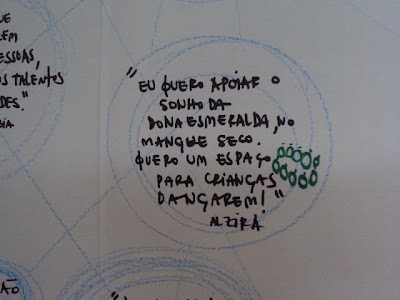 UE
EM
ESSOAS,
US TALENTOS
DES."
BIA
"EU QUERO APOIAR O
SONHO DA
DONA ESMERALDA, NO
MANGUE SECO.
QUERO UM ESPAÇO
PARA CRIANÇAS
DANÇAREM!"
ALZIRA
ÃO